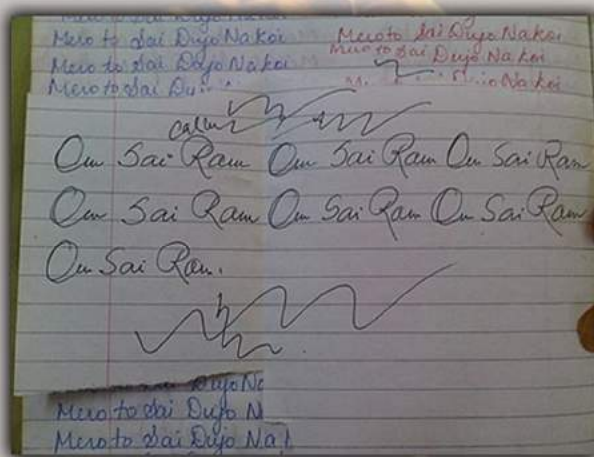 Mero to Sai Dujo Na koi Mero to Sai Dujo Na koi
Mero to Sai Dujo Na koi Mero to Sai Dujo Na koi
Mero to Sai Du Na koi
Om Sai Ram Om Sai Ram Om Sai Ram
Om Sai Ram Om Sai Ram Om Sai Ram
Om Sai Ram.
Dujo Na
Mero to Sai Dujo N
Mero to Sai Dujo Na